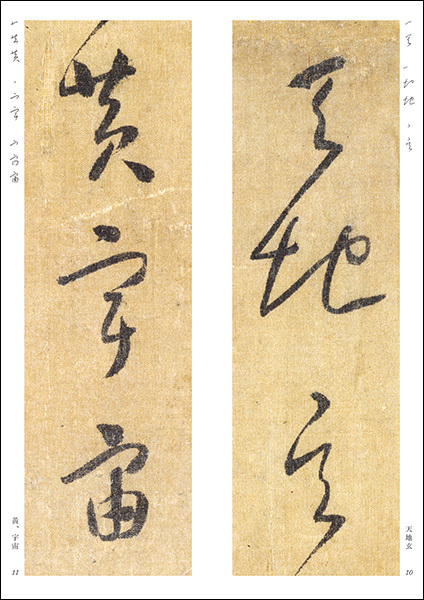 天地玄
天地玄
10
黄宇宙
黄、宇宙
11